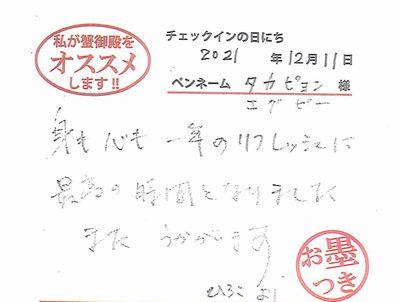 私が蟹御殿を
オススメ
します!!
チェックインの日にち
2021 年 12月 11日
ペンネーム タカピョン 様
エグピー
身も心も一年のリフレッシュに
最高の時間となりました
また うかがいます
ひろこ より
お墨
つき